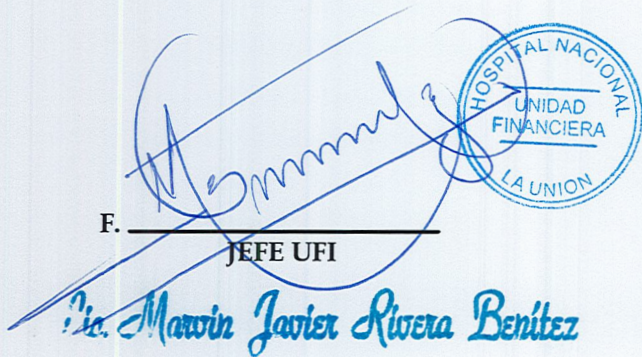 HOSPITAL NACIONAL
UNIDAD
FINANCIERA
LA UNION
F.
JEFE UFI
Lic. Marvin Javier Rivera Benítez